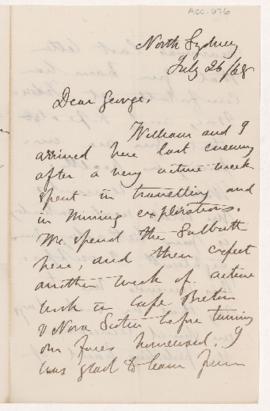 ACC-076
North Sydney
July 26/68
Dear George,
William and I
arrived here last evening
after a very active week
spent in travelling and
in mining explorations.
We spend the Sabbath
here, and then expect
another week of active
work in Cape Breton
& Nova Scotia before turning
our faces homeward. I
was glad to learn from